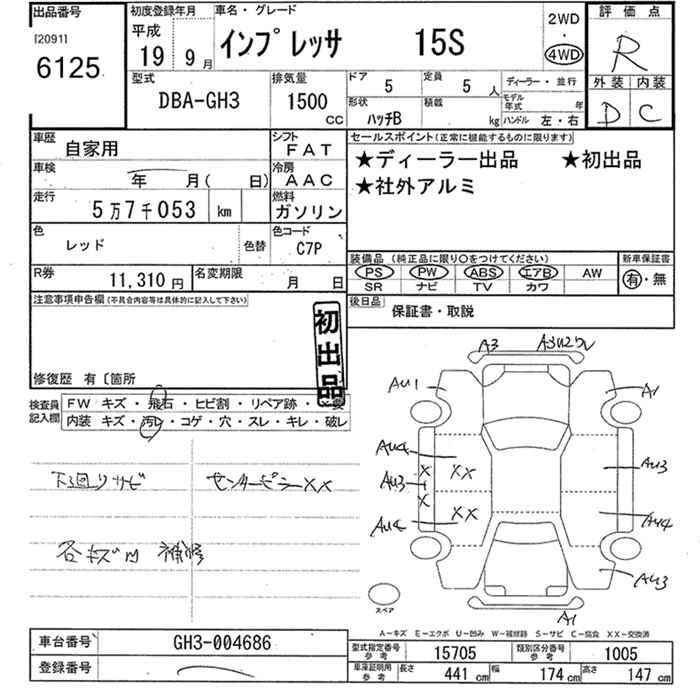 出品番号
[2091]
6125
初度登録年月
平成
19 9月
車名・グレード
インプレッサ 15S
2WD
・
4WD
評価点
R
外装 内装
D C
型式
DBA-GH3
排気量
1500
CC
ドア 5
定員 5 人
ディーラー・並行
形状 ハッチB
積載 kg
モデル年式 年
ハンドル 左・右
車歴 自家用
シフト FAT
車検 年 月( 日)
冷房 AAC
走行 5万7千053 km
燃料 ガソリン
色 レッド
色替
色コード C7P
R券 11,310円
名変期限 月 日
セールスポイント(正常に機能するものに限ります)
★ディーラー出品 ★初出品
★社外アルミ
装備品(純正品に限り○をつけてください)
PS PW ABS エアB AW
SR ナビ TV カワ
新車保証書
有・無
後日品
保証書・取説
注意事項申告欄(不具合内容等は具体的に記入して下さい)
初出品
修復歴 有〔箇所
検査員記入欄
FW キズ・飛石・ヒビ割・リペア跡・ 要
内装 キズ・汚レ・コゲ・穴・スレ・キレ・破レ
下回りサビ センターピラーXX
各キズ凹 補修
A3
AU1
A1
AU4
X
XX
AU3
AU3
X
XX
AU4
AU4
AU3
A1
スペア
A-キズ E-エクボ U-凹み W-補修跡 S-サビ C-腐食 XX-交換済
車台番号 GH3-004686
登録番号
型式指定番号参考 15705
類別区分番号参考 1005
車庫証明用参考 長さ 441 cm 幅 174 cm 高さ 147 cm